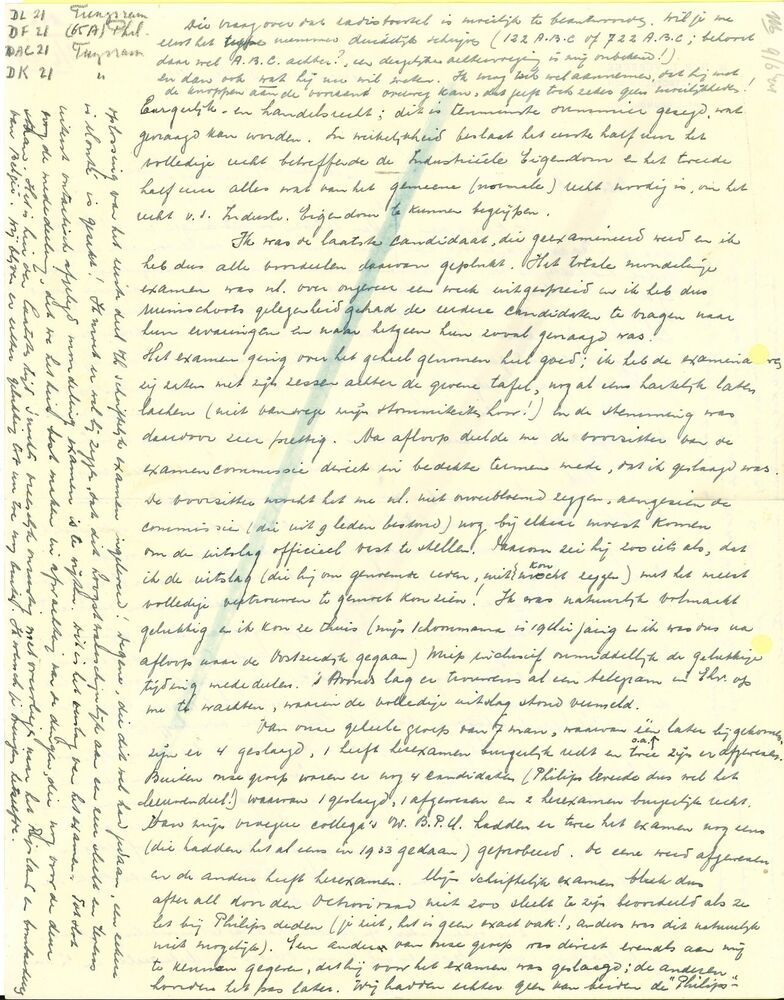 DL 21 Tungsram
DF 21 (65A) Phil.
DAC 21 Tungsram
DK 21 "
De vraag over dat radiotoestel is moeilijk te beantwoorden. Wil je me
eerst het nummer duidelijk schrijven (122 A.B.C of 722 A.B.C; behoort
daar wel A.B.C. achter?, een dergelijke is mij onbekend!)
en dan ook wat hij nu wil weten. Ik mag toch wel aannemen, dat hij met
de knoppen aan de voorkant overweg kan, dat geeft toch zeker geen moeilijkheden!
Burgerlijk- en handelsrecht; dit is tenminste summier gezegd, wat
gevraagd kan worden. In werkelijkheid beslaat het eerste half uur het
volledige recht betreffende de Industrieële Eigendom en het tweede
half uur alles wat van het gemeene (normale) recht noodig is, om het
recht v.d. Industr. Eigendom te kunnen begrijpen.
Ik was de laatste candidaat, die geexamineerd werd en ik
heb dus alle voordeelen daarvan geplukt. Het totale mondelinge
examen was nl. over ongeveer een week uitgespreid en ik heb dus
ruimschoots gelegenheid gehad de eerdere candidaten te vragen naar
hun ervaringen en naar hetgeen hun zooal gevraagd was.
Het examen ging over het geheel genomen heel goed; ik heb de examina
zij zaten met zijn zessen achter de groene tafel, nog al eens hartelijk laten
lachen (niet vanwege mijn stommiteiten hoor!) en de stemming was
daardoor zeer prettig. Na afloop deelde me de voorzitter van de
examencommissie direct in bedekte termen mede, dat ik geslaagd was.
De voorzitter mocht het me nl. niet onverbloemd zeggen, aangezien de
commissie (die uit 9 leden bestond) nog bij elkaar moest komen
om de uitslag officieel vast te stellen. Daarom zei hij zoo iets als, dat
ik de uitslag (die hij om genoemde reden, niet kon zeggen) met het meest
volledige vertrouwen te gemoet kon zien! Ik was natuurlijk volmaakt
gelukkig en ik kon ze thuis (mijn schoonmama is 19 Mei jarig en ik was dus na
afloop naar de gegaan) Miep inclusief onmiddellijk de gelukkige
tijding mededeelen. 's Avonds lag er trouwens al een telegram in Ehv. op
me te wachten, waarin de volledige uitslag stond vermeld.
Van onze geheele groep van 7 man, waarvan één later bijgekomen
zijn er 4 geslaagd, 1 heeft herexamen burgerlijk recht en twee zijn er afgewezen.
Buiten onze groep waren er nog 4 candidaten (Philips leverde dus wel het
leeuwendeel!) waarvan 1 geslaagd, 1 afgewezen en 2 herexamen burgerlijk recht.
Van mijn vroegere collega's W.B.P.U. hadden er twee het examen nog eens
(die hadden het al eens in 1933 gedaan) geprobeerd. De eene werd afgewezen
en de andere heeft herexamen. Mijn schriftelijk examen bleek dus
after all door den Octrooiraad niet zoo slecht te zijn beoordeeld als ze
het bij Philips deden (je ziet, het is geen exact vak!, anders was dit natuurlijk
niet mogelijk). Een andere van onze groep was direct evenals aan mij
te kennen gegeven, dat hij voor het examen was geslaagd; de anderen
hoorden het pas later. Wij hadden echter geen van beiden de "Philips"-
oplossing van het eerste deel v/h schriftelijk examen ingeleverd! Degene, die dit wel had gedaan, een zekere
is gezakt! Ik moet er wel bij zeggen, dat dit hoogstwaarschijnlijk aan een zeer slecht en tevens
mondeling examen is te wijten. Dit is het verslag van het examen. Tot slot
nog de mededeeling, dat we het heel druk hebben